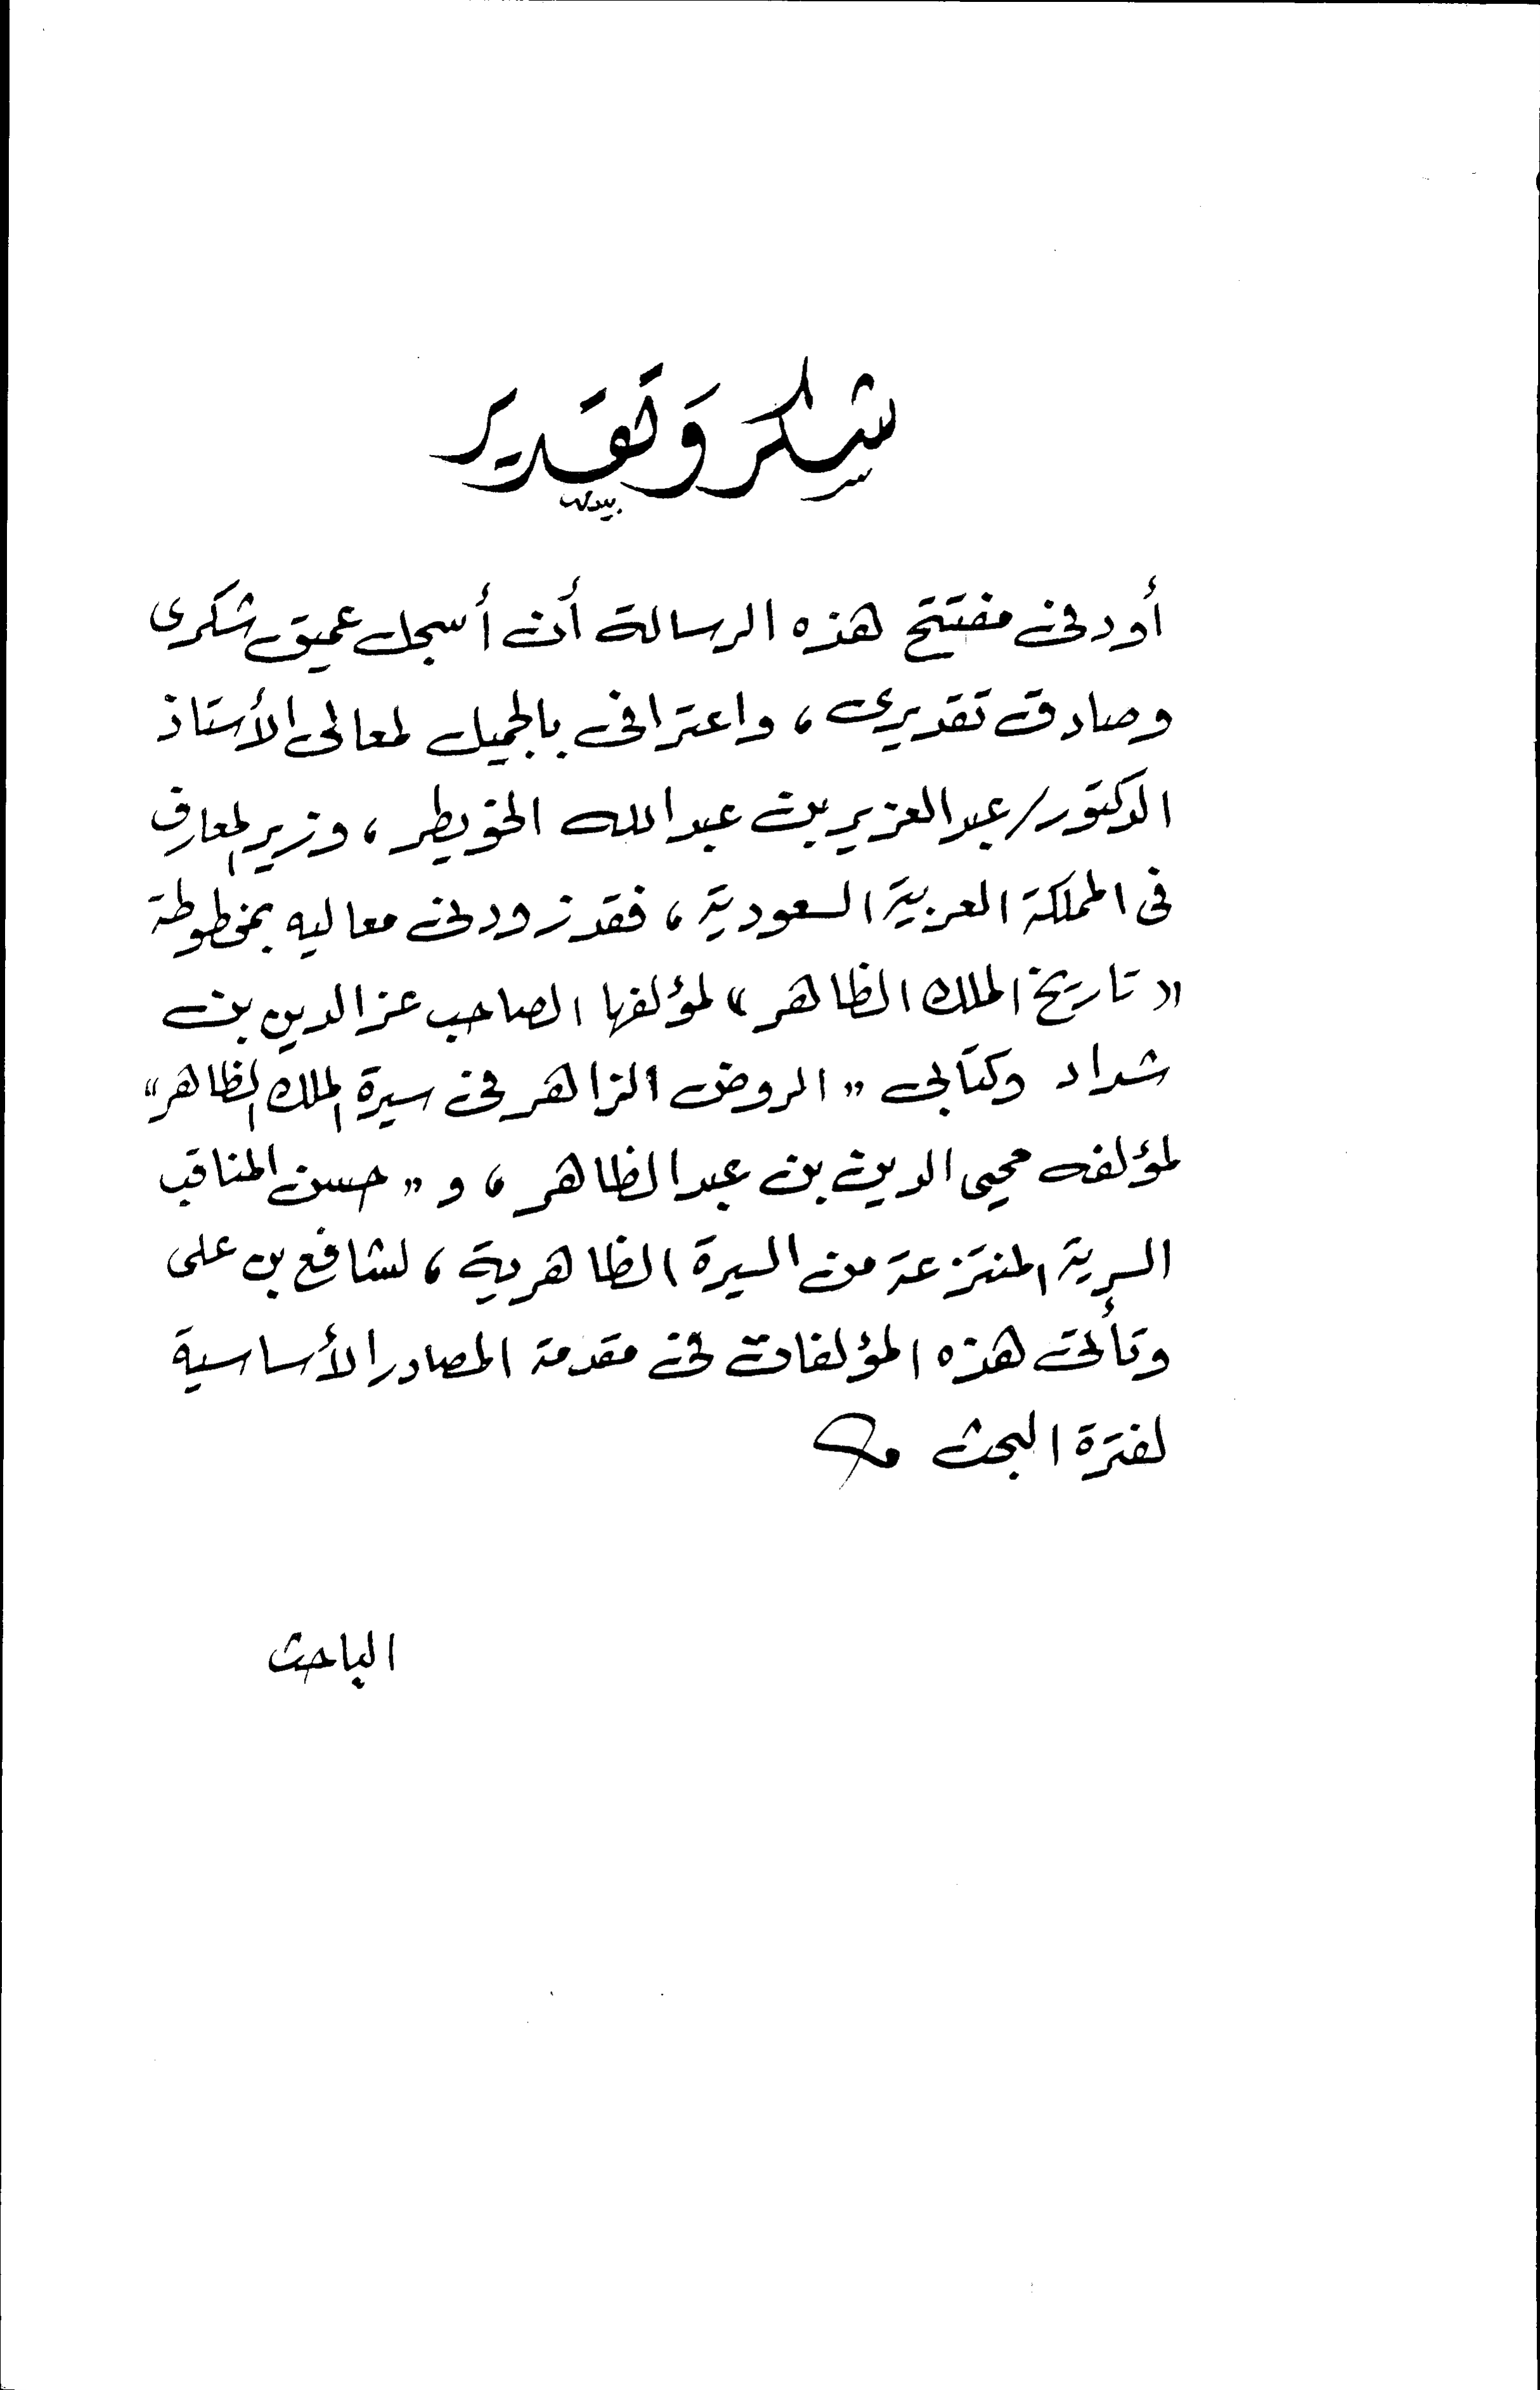 شكر وتقدير
أود فى مفتتح هذه الرسالة أن أسجل عميق شكرى
وصادق تقديرى ، واعترافى بالجميل لمعالى الأستاذ
الدكتور/ عبد العزيز بن عبد الله الخويطر ، وزير المعارف
فى المملكة العربية السعودية ، فقد زودنى معاليه بمخطوطة
« تاريخ الملك الظاهر » لمؤلفها الصاحب عز الدين بن
شداد وكتابى " الروض الزاهر فى سيرة الملك الظاهر "
لمؤلفه محيى الدين بن عبد الظاهر ، و " حسن المناقب
السرية المنتزعة من السيرة الظاهرية ، لشافع بن على
وتأتى هذه المؤلفات فى مقدمة المصادر الأساسية
لفترة البحث
الباحث